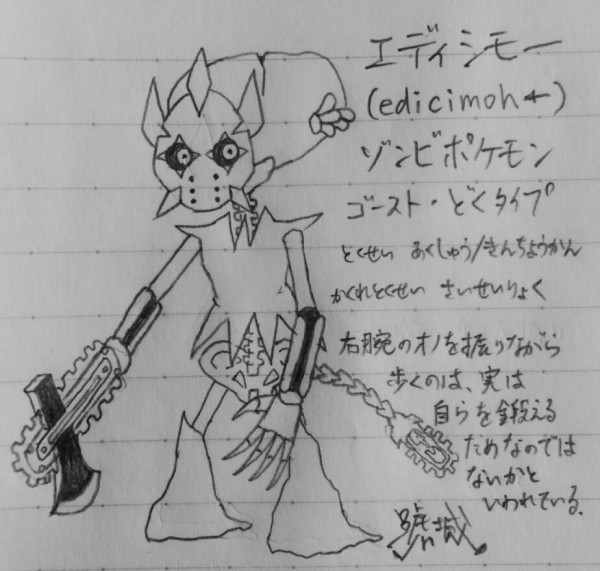 エディシモー
(edicimoh←)
ゾンビポケモン
ゴースト・どくタイプ
とくせい あくしゅう/きんちょうかん
かくれとくせい さいせいりょく
右腕のオノを振りながら
歩くのは、実は
自らを鍛える
ためなのでは
ないかと
いわれている.